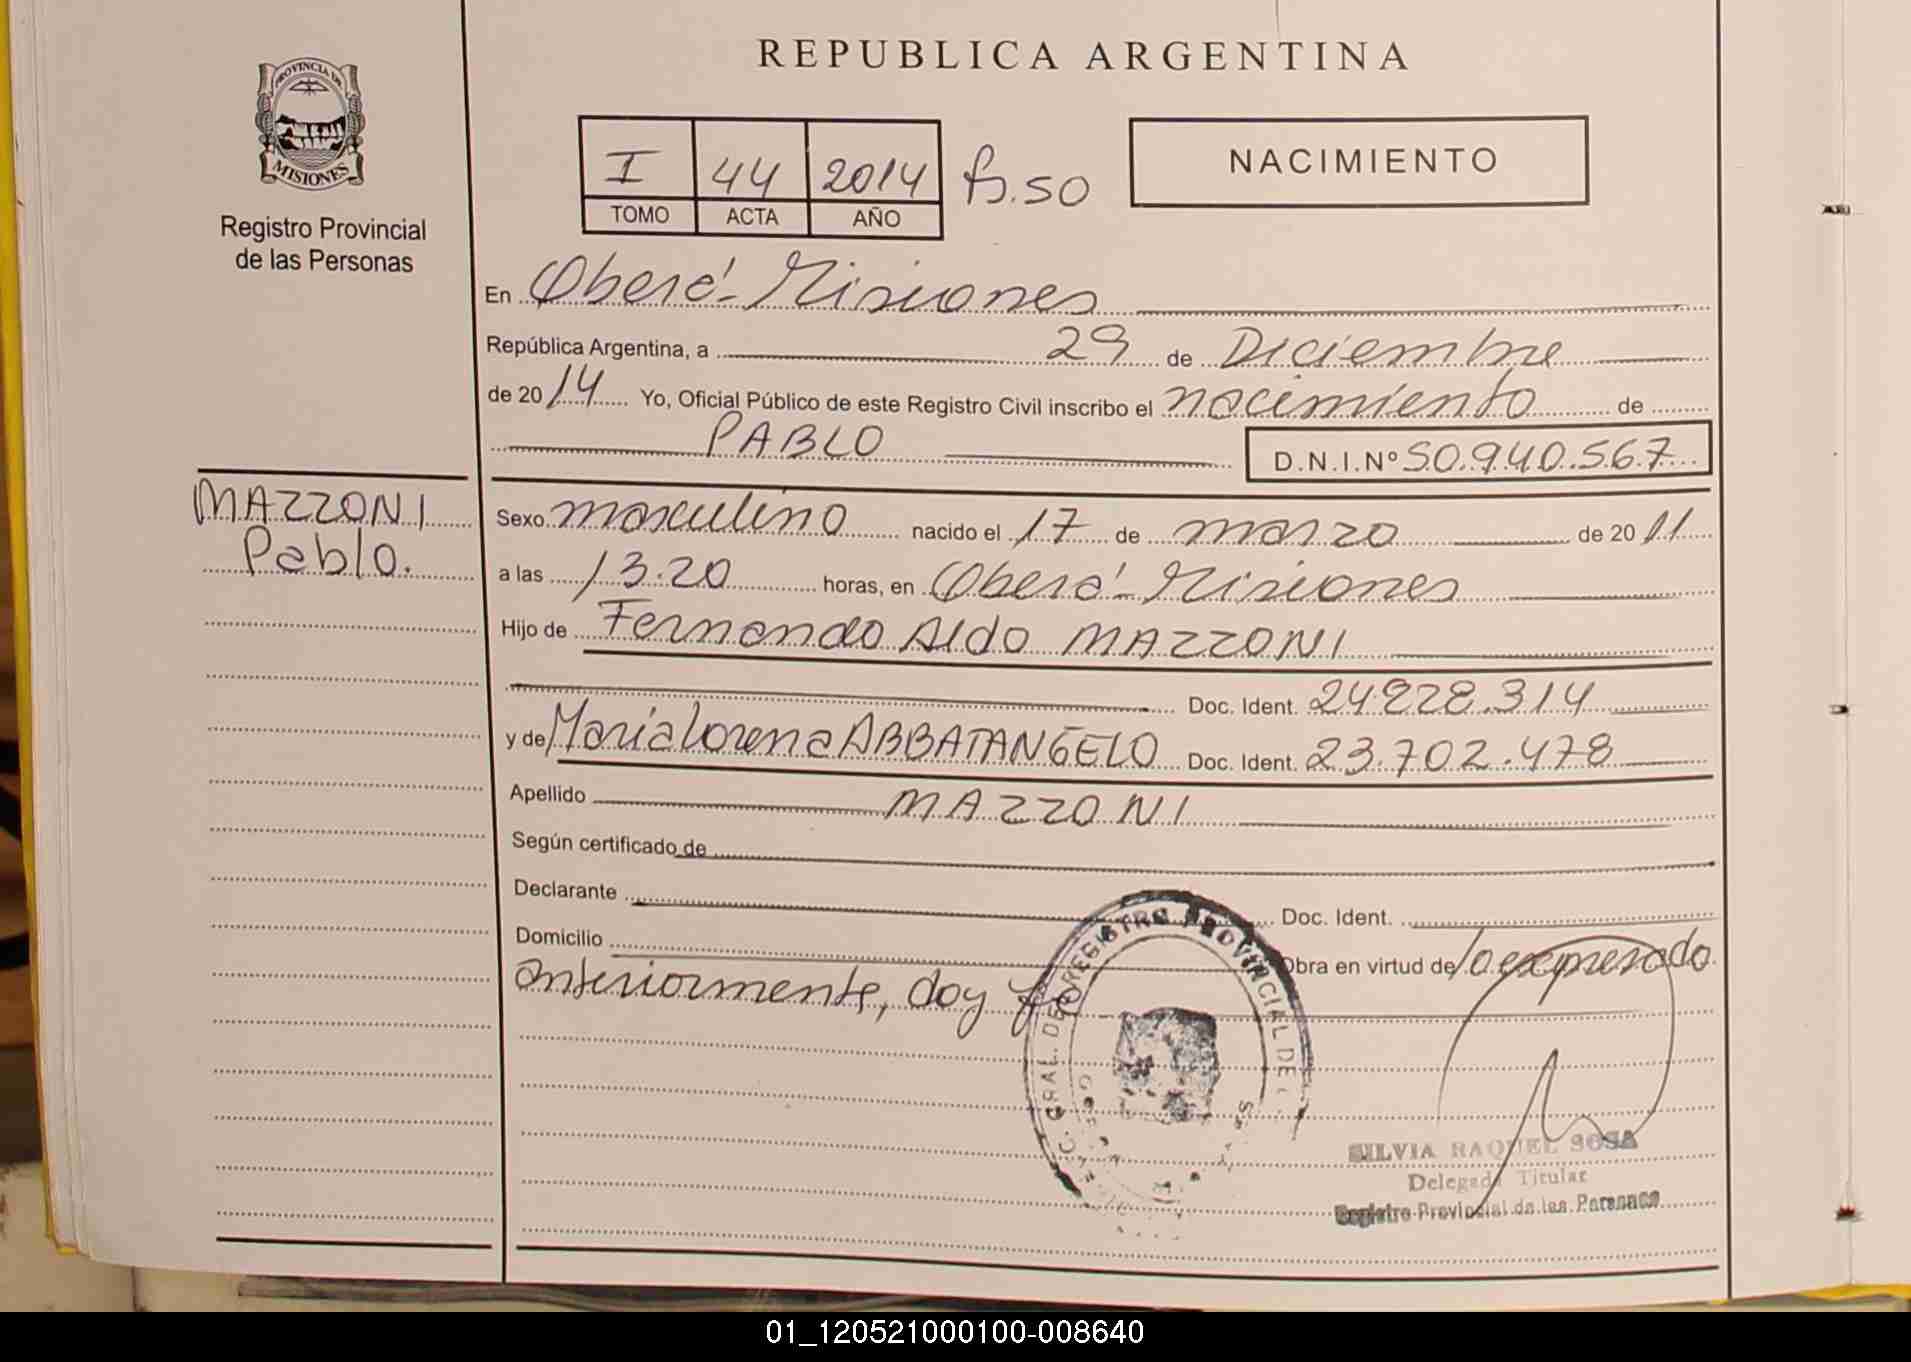 REPUBLICA ARGENTINA
PROVINCIA DE
MISIONES
Registro Provincial
de las Personas
I 44 2014 fs.50
TOMO ACTA AÑO
NACIMIENTO
En Oberá - Misiones
República Argentina, a 29 de Diciembre
de 2014 Yo, Oficial Público de este Registro Civil inscribo el nacimiento de
PABLO D.N.I.Nº 50.940.567
MAZZONI
Pablo.
Sexo masculino nacido el 17 de marzo de 2011
a las 13.20 horas, en Oberá - Misiones
Hijo de Fernando Aldo MAZZONI
Doc. Ident. 24.828.314
y de María Lorena ABBATANGELO Doc. Ident. 23.702.478
Apellido MAZZONI
Según certificado de
Declarante Doc. Ident.
Domicilio Obra en virtud de lo expresado
anteriormente, doy fe
GRAL. DEL REGISTRO PROVINCIAL DE
SILVIA RAQUEL SOSA
Delegada Titular
Registro Provincial de las Personas
01_120521000100-008640